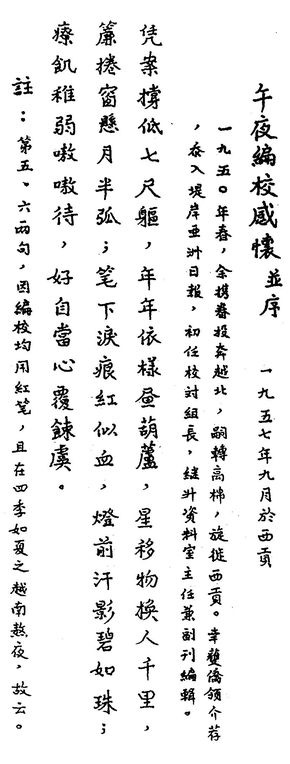 午夜編校感懷 並序 一九五七年九月於西貢
一九五〇年春，余携眷投奔越北，嗣轉高棉，旋徙西貢。幸蒙僑領介荐
，忝入堤岸亞洲日報，初任校對組長，繼升資料室主任兼副刊編輯。
凭案撐低七尺軀，年年依樣畫葫蘆，星移物換人千里，
簾捲窗懸月半弧；笔下淚痕紅似血，燈前汗影碧如珠；
療飢稚弱嗷嗷待，好自當心覆餗虞。
註：第五、六兩句，因編校均用紅笔，且在四季如夏之越南熱夜，故云。